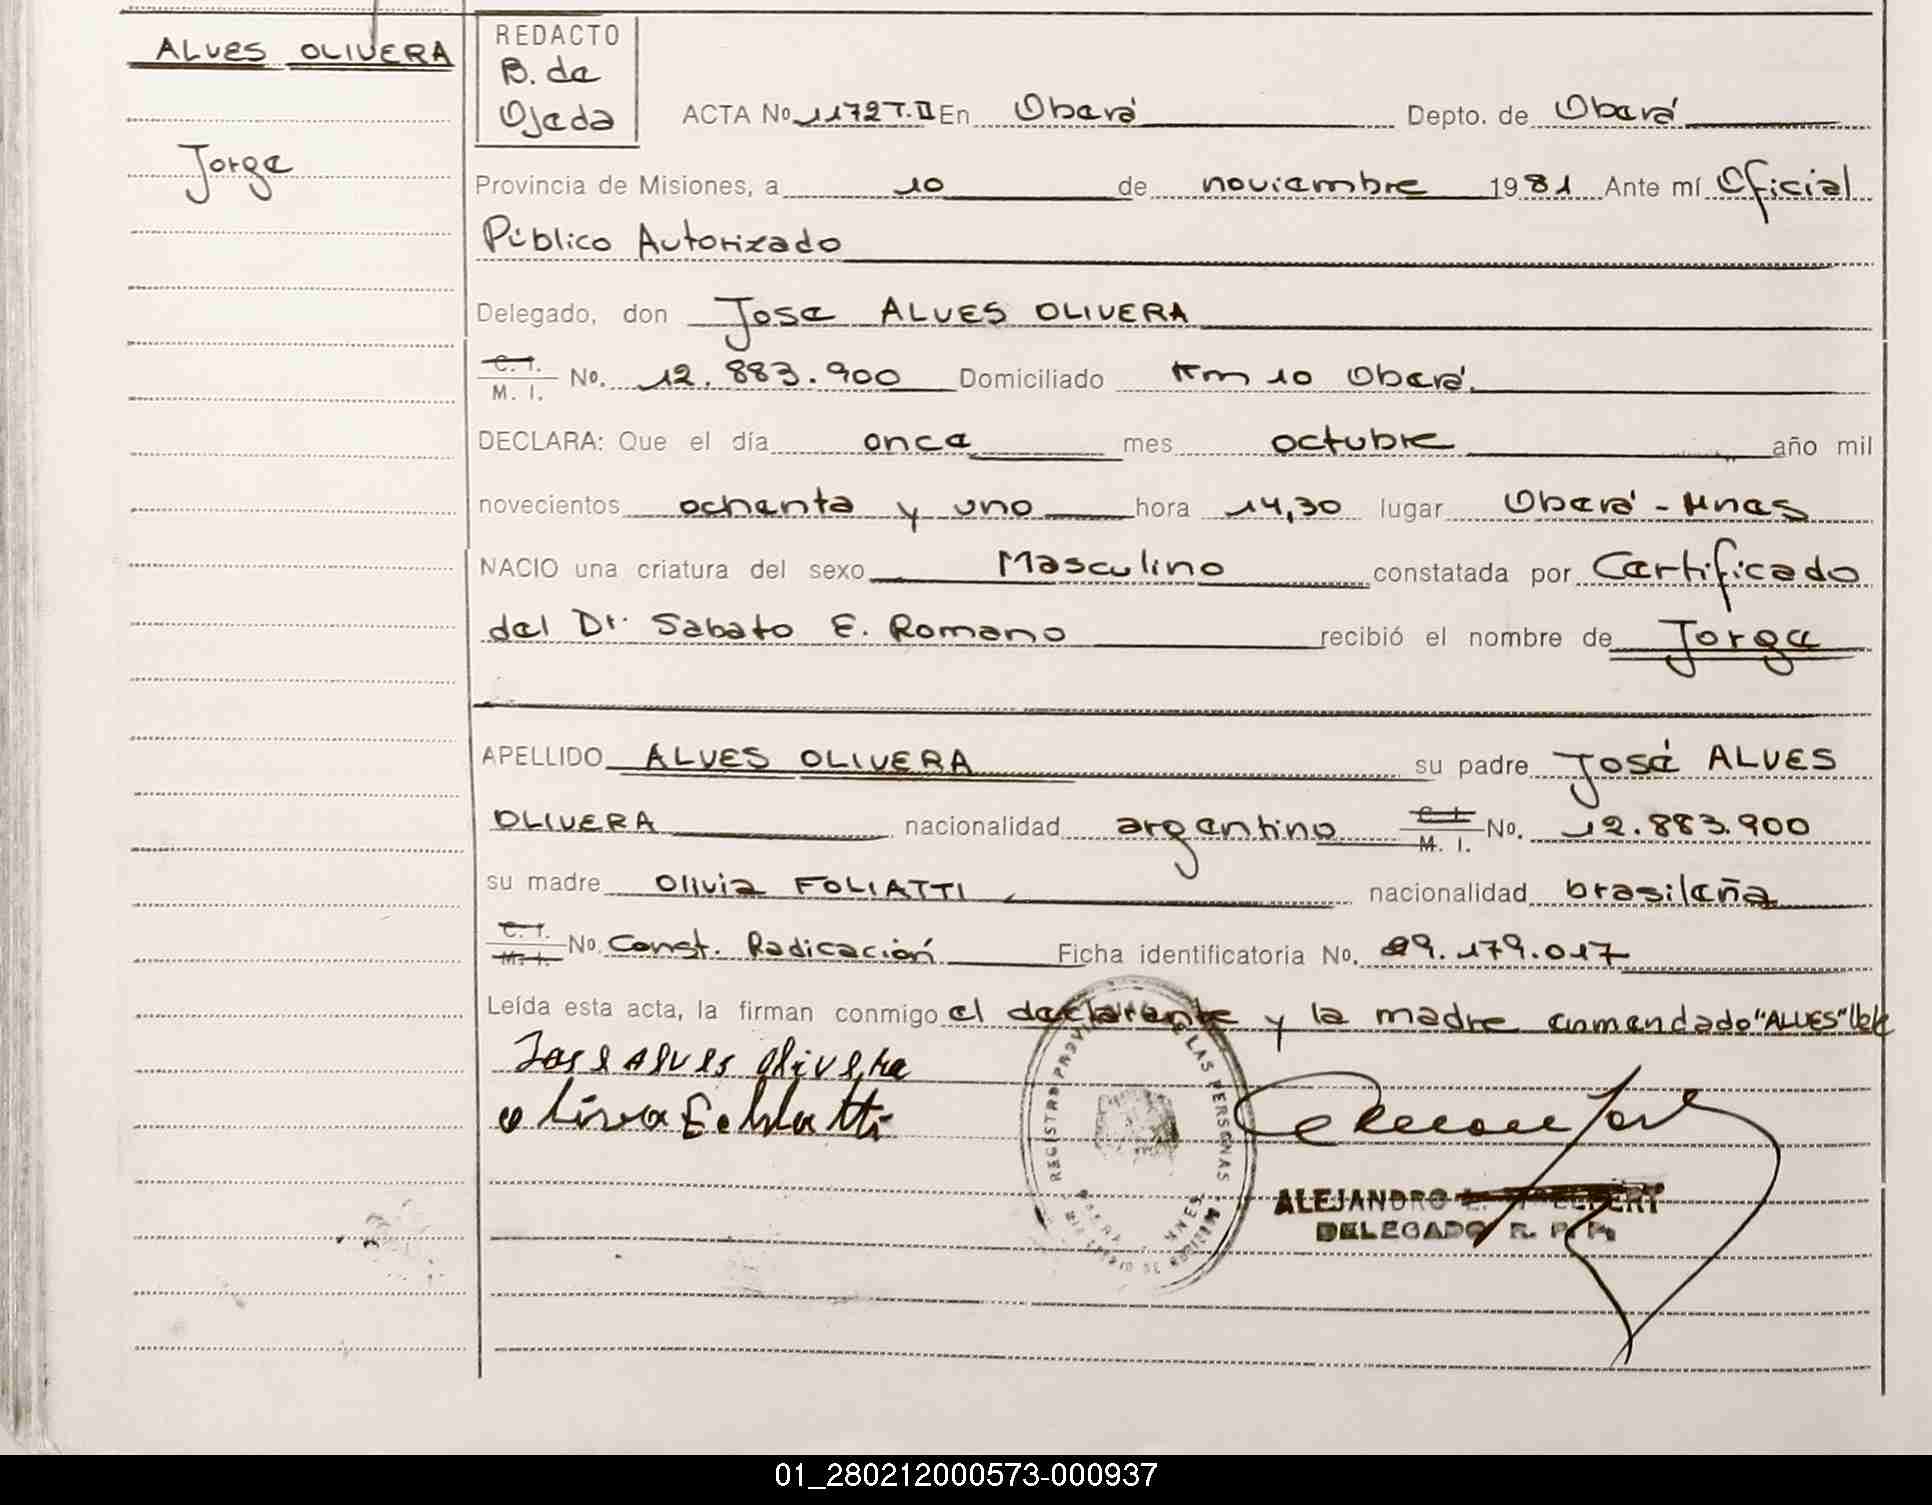 ALVES OLIVERA
Jorge
REDACTO
B. de
Ojeda
ACTA No 1172 T.II En Oberá Depto. de Oberá
Provincia de Misiones, a 10 de noviembre 1981 Ante mí Oficial
Público Autorizado
Delegado, don Jose ALVES OLIVERA
C. I.
M. I. No. 12.883.900 Domiciliado Km 10 Oberá.
DECLARA: Que el día once mes octubre año mil
novecientos ochenta y uno hora 14,30 lugar Oberá - Mnes
NACIO una criatura del sexo Masculino constatada por Certificado
del Dr. Sabato E. Romano recibió el nombre de Jorge
APELLIDO ALVES OLIVERA su padre José ALVES
OLIVERA nacionalidad argentino C. I. M. I. No. 12.883.900
su madre Olivia FOLIATTI nacionalidad brasileña
C. I. M. I. No. Const. Radicación Ficha identificatoria No. 89.179.017
Leída esta acta, la firman conmigo el declarante y la madre enmendado "ALVES" Vale
Jose Alves Olivera
REGISTRO PROVINCIAL DE LAS PERSONAS
ALEJANDRO
DELEGADO R. P. P.
01_280212000573-000937